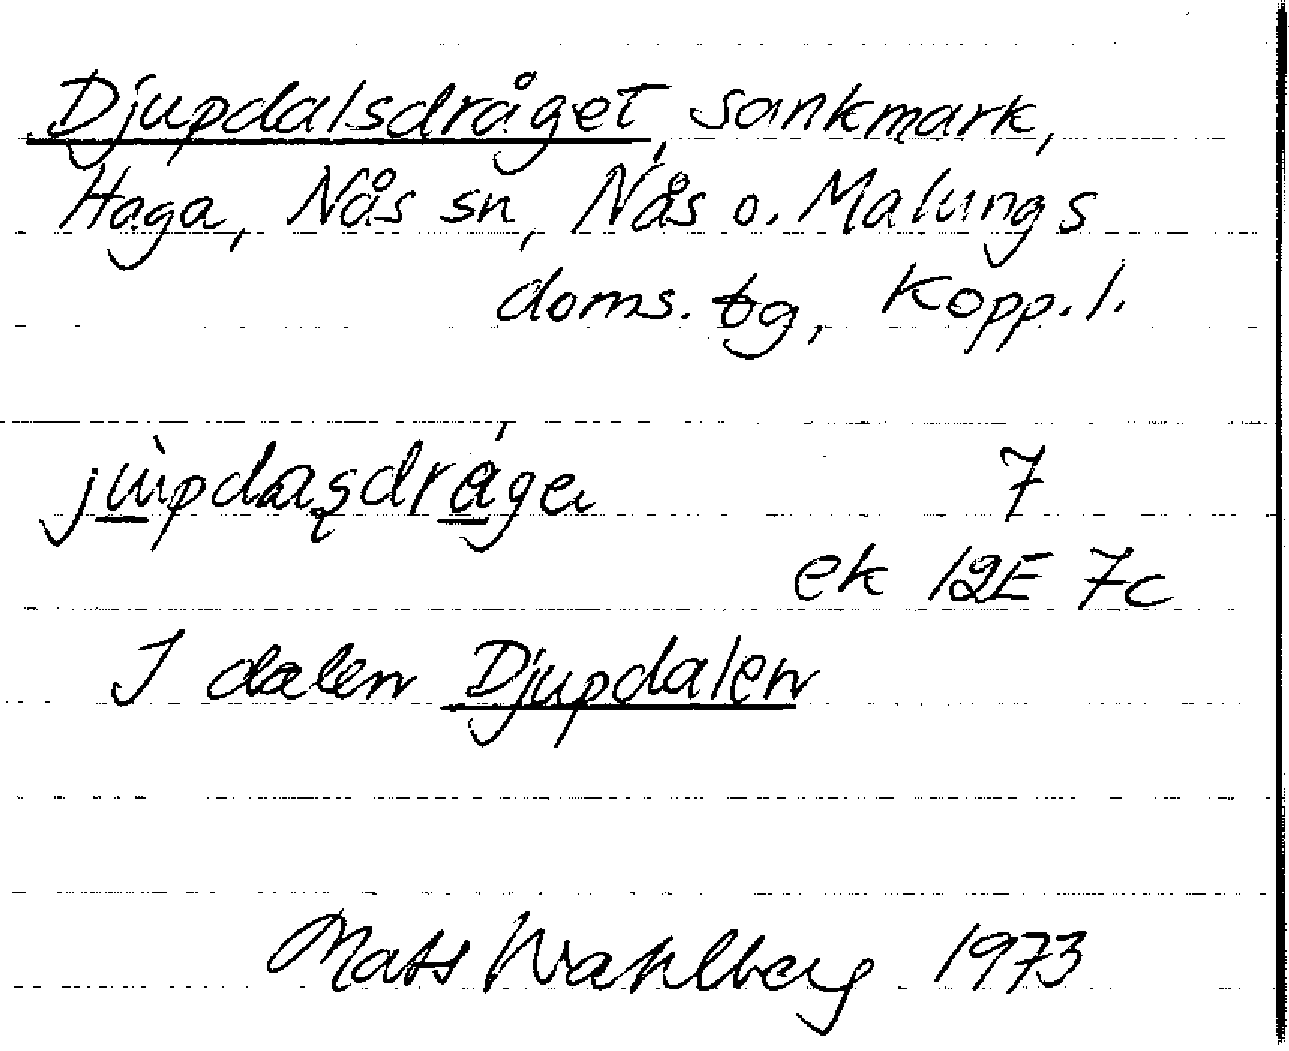 Djupdalsdråget, sankmark,
Haga, Nås sn, Nås o. Malungs
doms. tg, Kopp. l.
7
ek 12E 7c
I dalen Djupdalen
Mats Wahlberg 1973